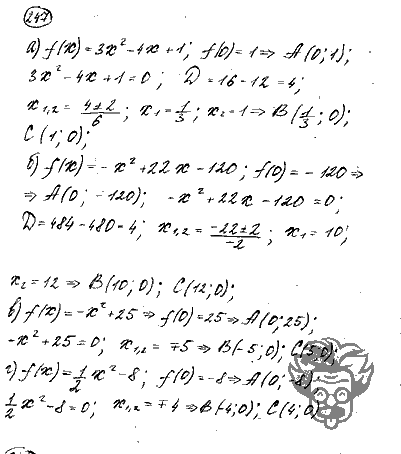 247
а) f(x) = 3x² - 4x + 1; f(0) = 1 ⇒ A(0; 1);
3x² - 4x + 1 = 0; D = 16 - 12 = 4;
x₁,₂ = (4 ± 2)/6; x₁ = 1/3; x₂ = 1 ⇒ B(1/3; 0);
C(1; 0);
б) f(x) = -x² + 22x - 120; f(0) = -120 ⇒
⇒ A(0; -120); -x² + 22x - 120 = 0;
D = 484 - 480 = 4; x₁,₂ = (-22 ± 2)/-2; x₁ = 10;
x₂ = 12 ⇒ B(10; 0); C(12; 0);
в) f(x) = -x² + 25 ⇒ f(0) = 25 ⇒ A(0; 25);
-x² + 25 = 0; x₁,₂ = ∓5 ⇒ B(-5; 0); C(5; 0);
г) f(x) = 1/2 x² - 8; f(0) = -8 ⇒ A(0; -8)
1/2 x² - 8 = 0; x₁,₂ = ∓4 ⇒ B(-4; 0); C(4; 0)